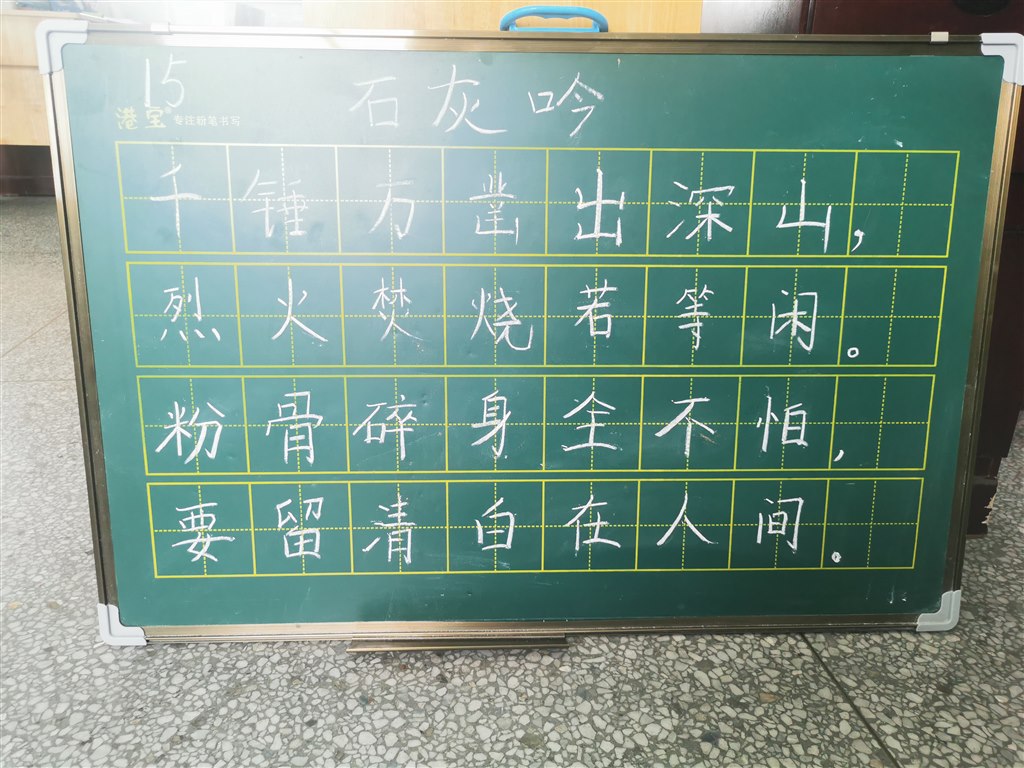 15
石灰吟
港宝 专注粉笔书写
千锤万凿出深山,
烈火焚烧若等闲。
粉骨碎身全不怕,
要留清白在人间。